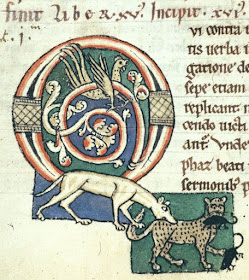 finit Liber .xv. Incipit .xvi.
Qui contra
tis uerba i
gatione de
sepe etiam
replicant n
cendo uicti
antᷣ. Vnde
phaz beati
sermonib; p